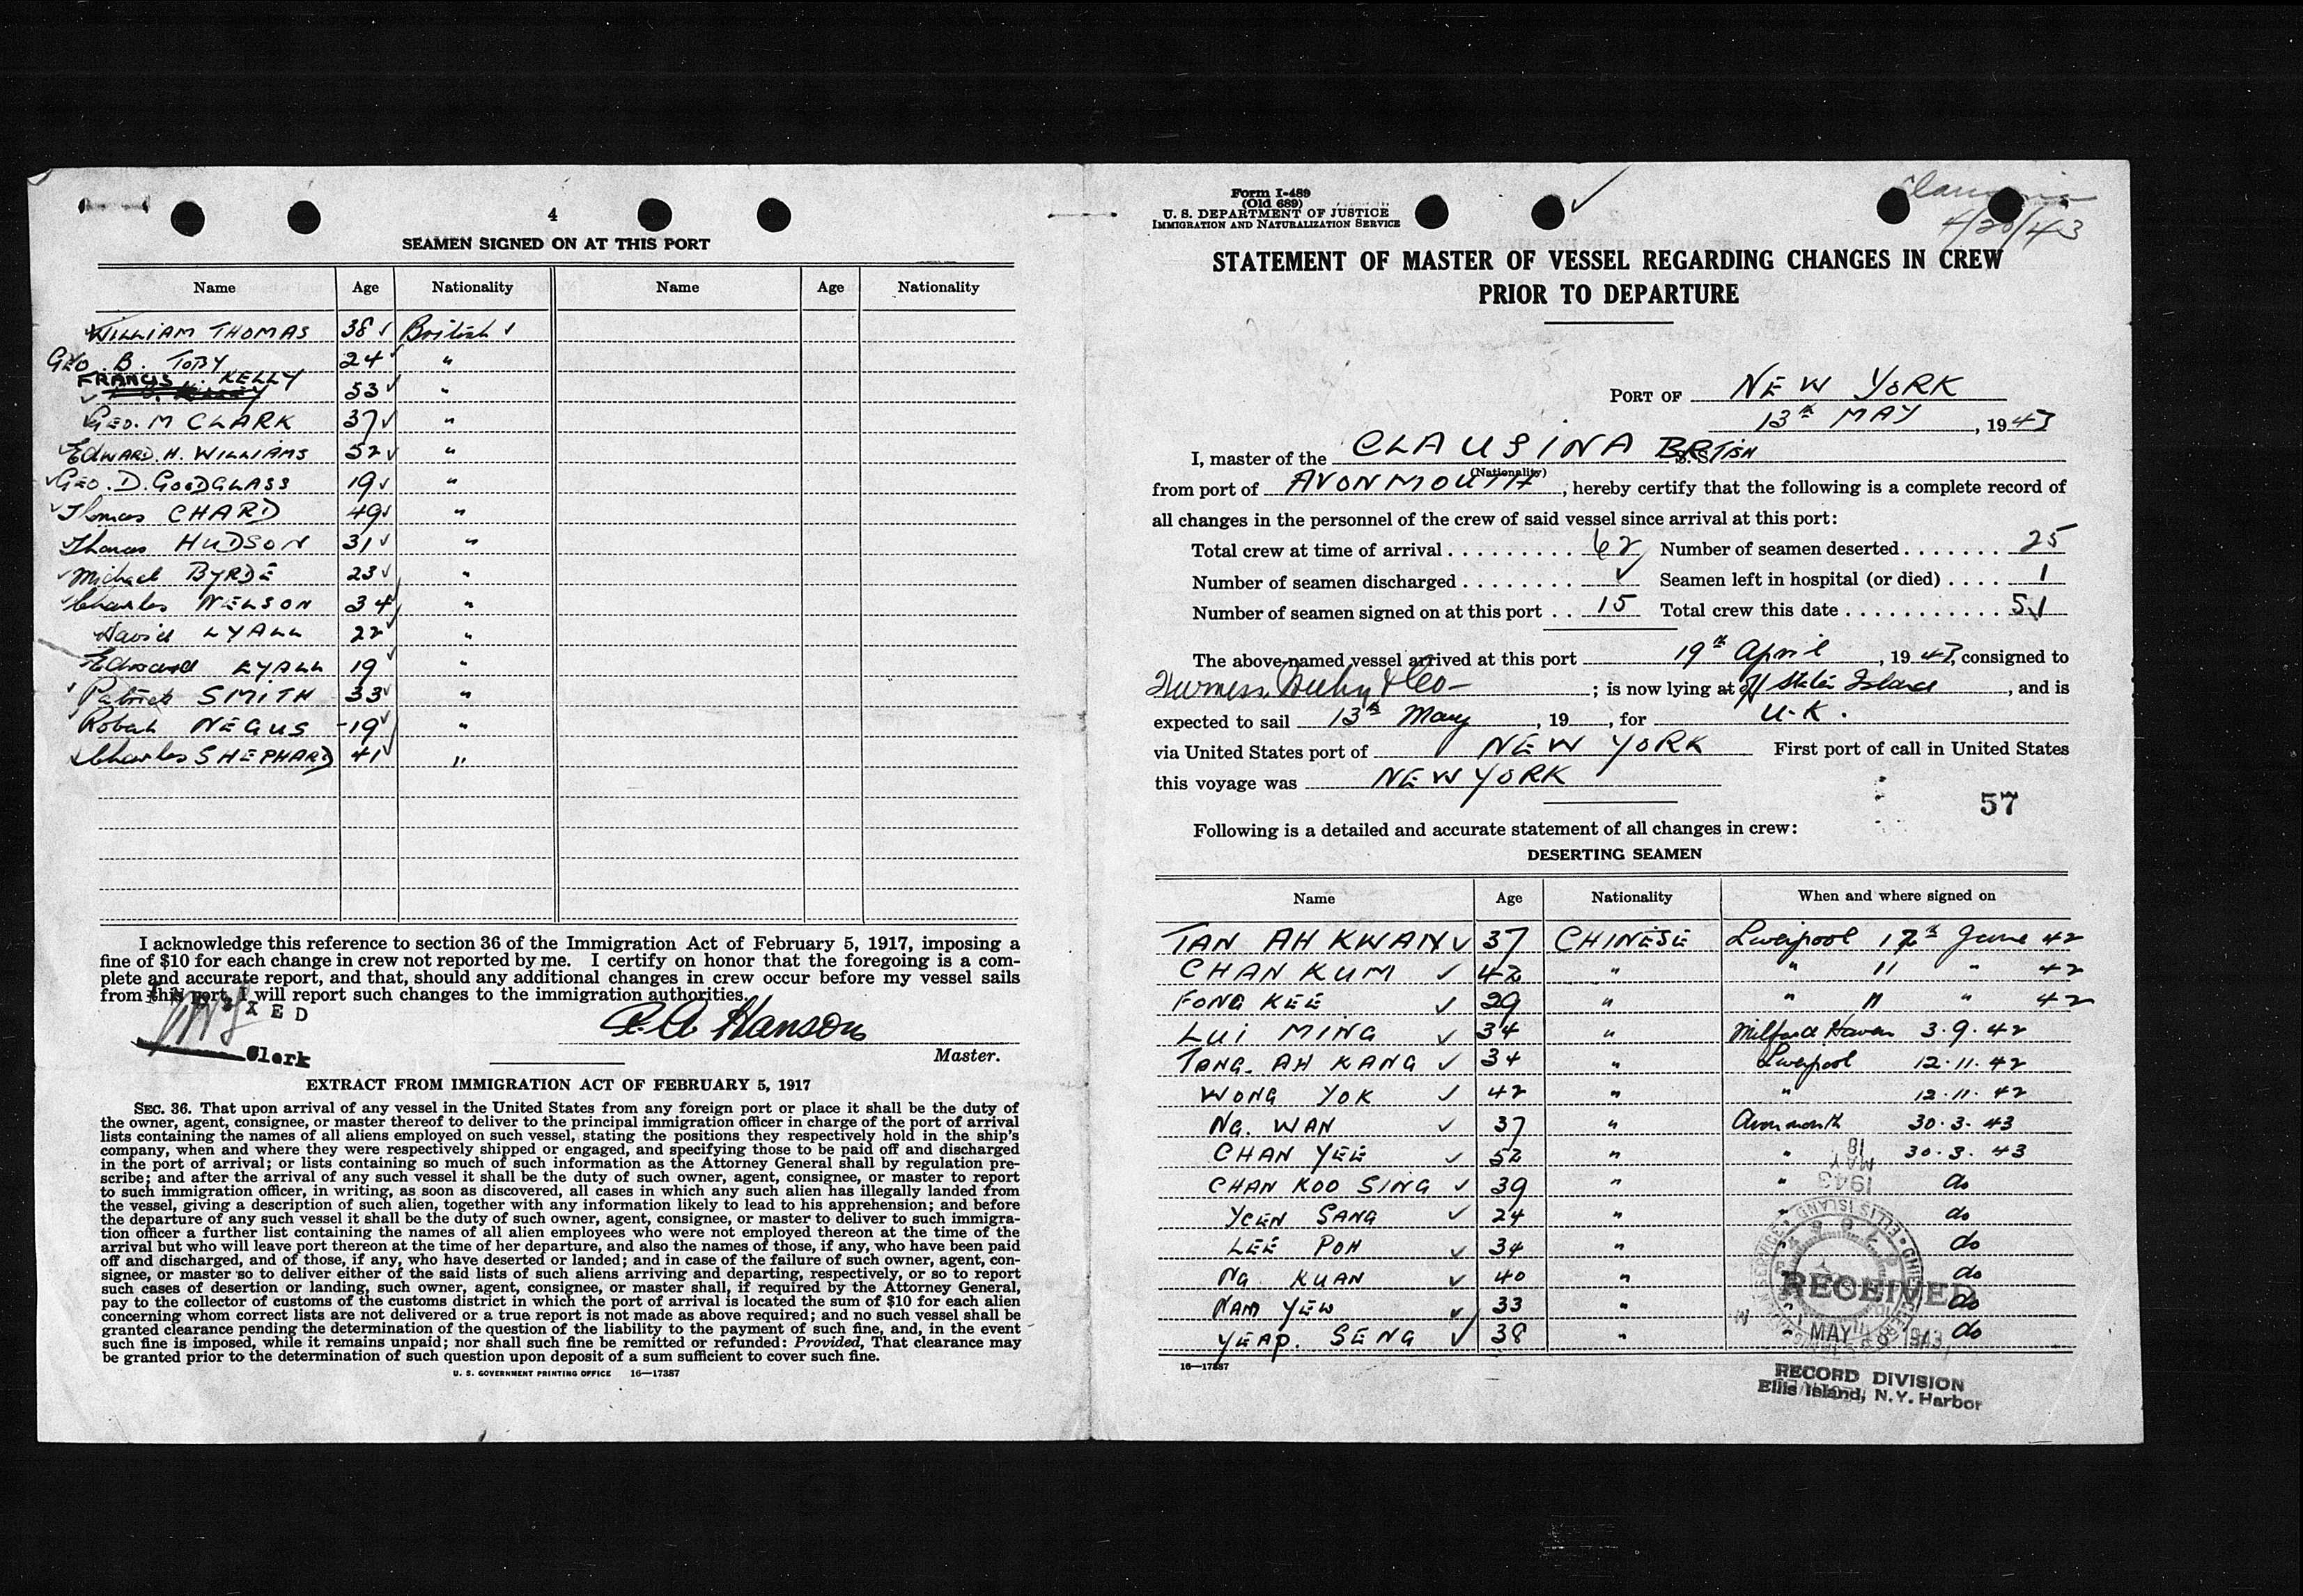 4
SEAMEN SIGNED ON AT THIS PORT
Name Age Nationality Name Age Nationality
WILLIAM THOMAS 38 British
GEO. B. TOBY 24 "
FRANCIS . KELLY 53 "
GEO. M CLARK 37 "
EDWARD. H. WILLIAMS 52 "
GEO. D. GOODGLASS 19 "
Thomas CHARD 49 "
Thomas HUDSON 31 "
Michael BYRDE 23 "
Charles NELSON 34 "
David LYALL 22 "
Edward LYALL 19 "
Patrick SMITH 33 "
Robert NEGUS 19 "
Charles SHEPHARD 41 "
I acknowledge this reference to section 36 of the Immigration Act of February 5, 1917, imposing a
fine of $10 for each change in crew not reported by me. I certify on honor that the foregoing is a com-
plete and accurate report, and that, should any additional changes in crew occur before my vessel sails
from this port, I will report such changes to the immigration authorities.
XED
Clerk
Hanson
Master.
EXTRACT FROM IMMIGRATION ACT OF FEBRUARY 5, 1917
SEC. 36. That upon arrival of any vessel in the United States from any foreign port or place it shall be the duty of
the owner, agent, consignee, or master thereof to deliver to the principal immigration officer in charge of the port of arrival
lists containing the names of all aliens employed on such vessel, stating the positions they respectively hold in the ship's
company, when and where they were respectively shipped or engaged, and specifying those to be paid off and discharged
in the port of arrival; or lists containing so much of such information as the Attorney General shall by regulation pre-
scribe; and after the arrival of any such vessel it shall be the duty of such owner, agent, consignee, or master to report
to such immigration officer, in writing, as soon as discovered, all cases in which any such alien has illegally landed from
the vessel, giving a description of such alien, together with any information likely to lead to his apprehension; and before
the departure of any such vessel it shall be the duty of such owner, agent, consignee, or master to deliver to such immigra-
tion officer a further list containing the names of all alien employees who were not employed thereon at the time of the
arrival but who will leave port thereon at the time of her departure, and also the names of those, if any, who have been paid
off and discharged, and of those, if any, who have deserted or landed; and in case of the failure of such owner, agent, con-
signee, or master so to deliver either of the said lists of such aliens arriving and departing, respectively, or so to report
such cases of desertion or landing, such owner, agent, consignee, or master shall, if required by the Attorney General,
pay to the collector of customs of the customs district in which the port of arrival is located the sum of $10 for each alien
concerning whom correct lists are not delivered or a true report is not made as above required; and no such vessel shall be
granted clearance pending the determination of the question of the liability to the payment of such fine, and, in the event
such fine is imposed, while it remains unpaid; nor shall such fine be remitted or refunded: Provided, That clearance may
be granted prior to the determination of such question upon deposit of a sum sufficient to cover such fine.
U. S. GOVERNMENT PRINTING OFFICE 16—17387
Form I-489
(Old 689)
U. S. DEPARTMENT OF JUSTICE
IMMIGRATION AND NATURALIZATION SERVICE
4/20/43
STATEMENT OF MASTER OF VESSEL REGARDING CHANGES IN CREW
PRIOR TO DEPARTURE
PORT OF NEW YORK
13th MAY, 1943
I, master of the CLAUSINA BRTISH
(Nationality)
from port of AVONMOUTH, hereby certify that the following is a complete record of
all changes in the personnel of the crew of said vessel since arrival at this port:
Total crew at time of arrival . . . . . . . . . 62 Number of seamen deserted . . . . . . . 25
Number of seamen discharged . . . . . . . . Seamen left in hospital (or died) . . . . 1
Number of seamen signed on at this port . . 15 Total crew this date . . . . . . . . . . . 51
The above-named vessel arrived at this port 19th April, 1943, consigned to
& Co; is now lying at off Staten Island, and is
expected to sail 13th May, 19, for U.K.
via United States port of NEW YORK First port of call in United States
this voyage was NEW YORK
57
Following is a detailed and accurate statement of all changes in crew:
DESERTING SEAMEN
Name Age Nationality When and where signed on
TAN AH KWAN 37 CHINESE Liverpool 12th June 42
CHAN KUM 42 " " 11 " 42
FONG KEE 29 " " 11 " 42
LUI MING 34 " Milford Haven 3.9.42
TANG. AH KANG 34 " Liverpool 12.11.42
WONG YOK 42 " " 12.11.42
NG. WAN 37 " Avonmouth 30.3.43
CHAN YEE 52 " " 30.3.43
CHAN KOO SING 39 " " do
YCEN SANG 24 " " do
LEE POH 34 " " do
NG KUAN 40 " " do
NAM YEW 33 " " do
YEAP. SENG 38 " " do
MAY 18 1943
RECEIVED
MAY 1943
16—17387
RECORD DIVISION
Ellis Island, N.Y. Harbor